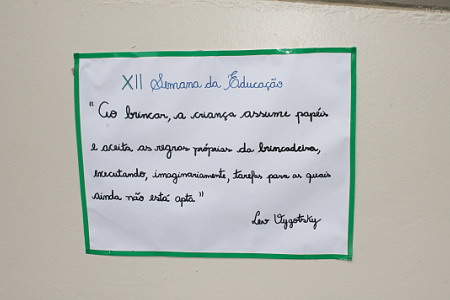 XII Semana da Educação
"Ao brincar, a criança assume papéis
e aceita as regras próprias da brincadeira,
executando, imaginariamente, tarefas para as quais
ainda não está apta"
Lev Vygotsky